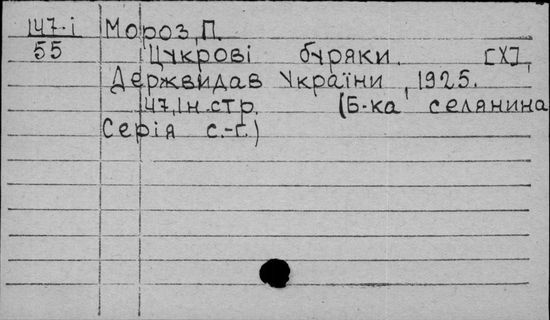 147-і Мороз, П.
55 Цукрові буряки. [Х],
Держвидав України, 1925.
47, Ін. стр. (Б-ка селянина
Серія с.-г.)